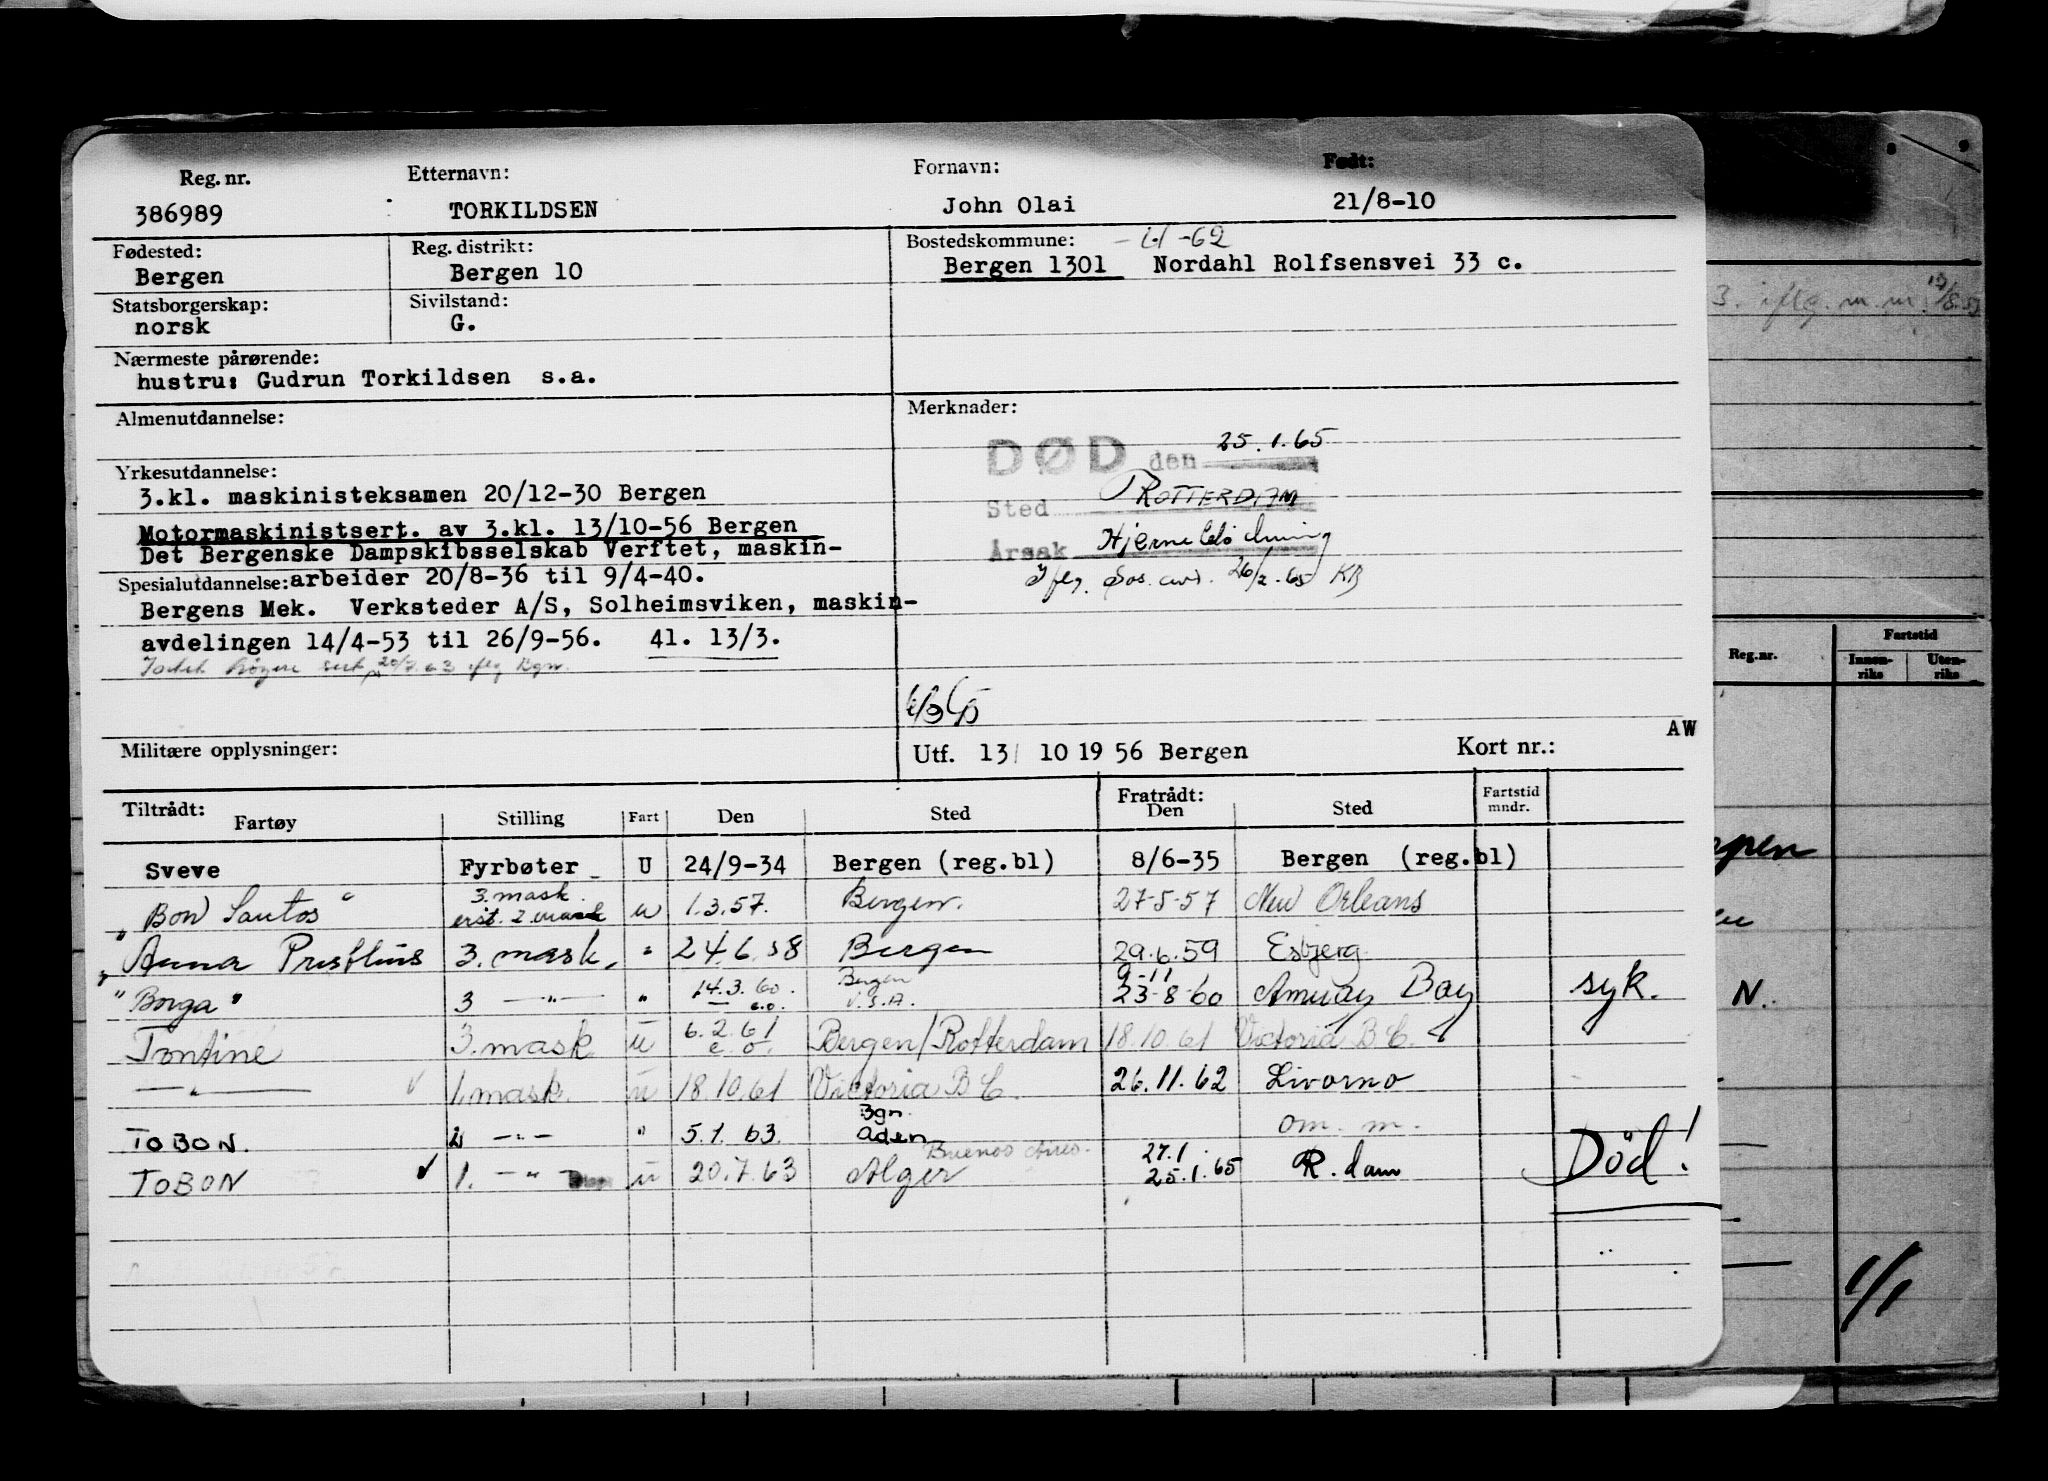 Reg. nr. Etternavn: Fornavn: Født:
386989 TORKILDSEN John Olai 21/8-10
Fødested: Reg. distrikt: Bostedskommune: -62
Bergen Bergen 10 Bergen 1301 Nordahl Rolfsensvei 33 c.
Statsborgerskap: Sivilstand:
norsk G.
Nærmeste pårørende:
hustru: Gudrun Torkildsen s.a.
Almenutdannelse: Merknader:
DØD den 25.1.65
Yrkesutdannelse:
3.kl. maskinisteksamen 20/12-30 Bergen
Sted ROTTERDAM
Motormaskinistsert. av 3.kl. 13/10-56 Bergen
Årsak Hjerneblødning
Det Bergenske Dampskibsselskab Verftet, maskin-
Spesialutdannelse: arbeider 20/8-36 til 9/4-40.
Iflg. 26/2-65 KB
Bergens Mek. Verksteder A/S, Solheimsviken, maskin-
avdelingen 14/4-53 til 26/9-56. 41. 13/3.
høyere sert 20/7.63 iflg Bgn.
AW
Militære opplysninger: Utf. 13/ 10 19 56 Bergen Kort nr.:
Tiltrådt: Fratrådt:
Fartøy Stilling Fart Den Sted Den Sted Fartstid mndr.
Sveve Fyrbøter U 24/9-34 Bergen (reg.bl) 8/6-35 Bergen (reg.bl)
"Bow Santos" 3. mask. u 1.3.57. Bergen. 27-5-57 New Orleans
erst. 2 mask
"Anna Presthus 3. mask. " 24.6.58 Bergen 29.6.59 Esbjerg.
"Borga" 3 —"— " 14.3.60. Bergen 9-11
e.o. U.S.A. 23-8-60 Amuay Bay syk.
Tontine 3. mask u 6.2.61 e.o. Bergen/Rotterdam 18.10.61 Victoria B C.
—"— 1. mask. u 18.10.61 Victoria B C. 26.11.62 Livorno
TOBON. —"— " 5.1.63. Bgn. Aden om. m.
Buenos Aires. 27.1
TOBON 1. —"— u 20.7.63 Alger 25.1.65 R.dam Død!
3. iflg. m.m. 
Reg.nr. Fartstid
Innen-riks Uten-riks
N.
1/1